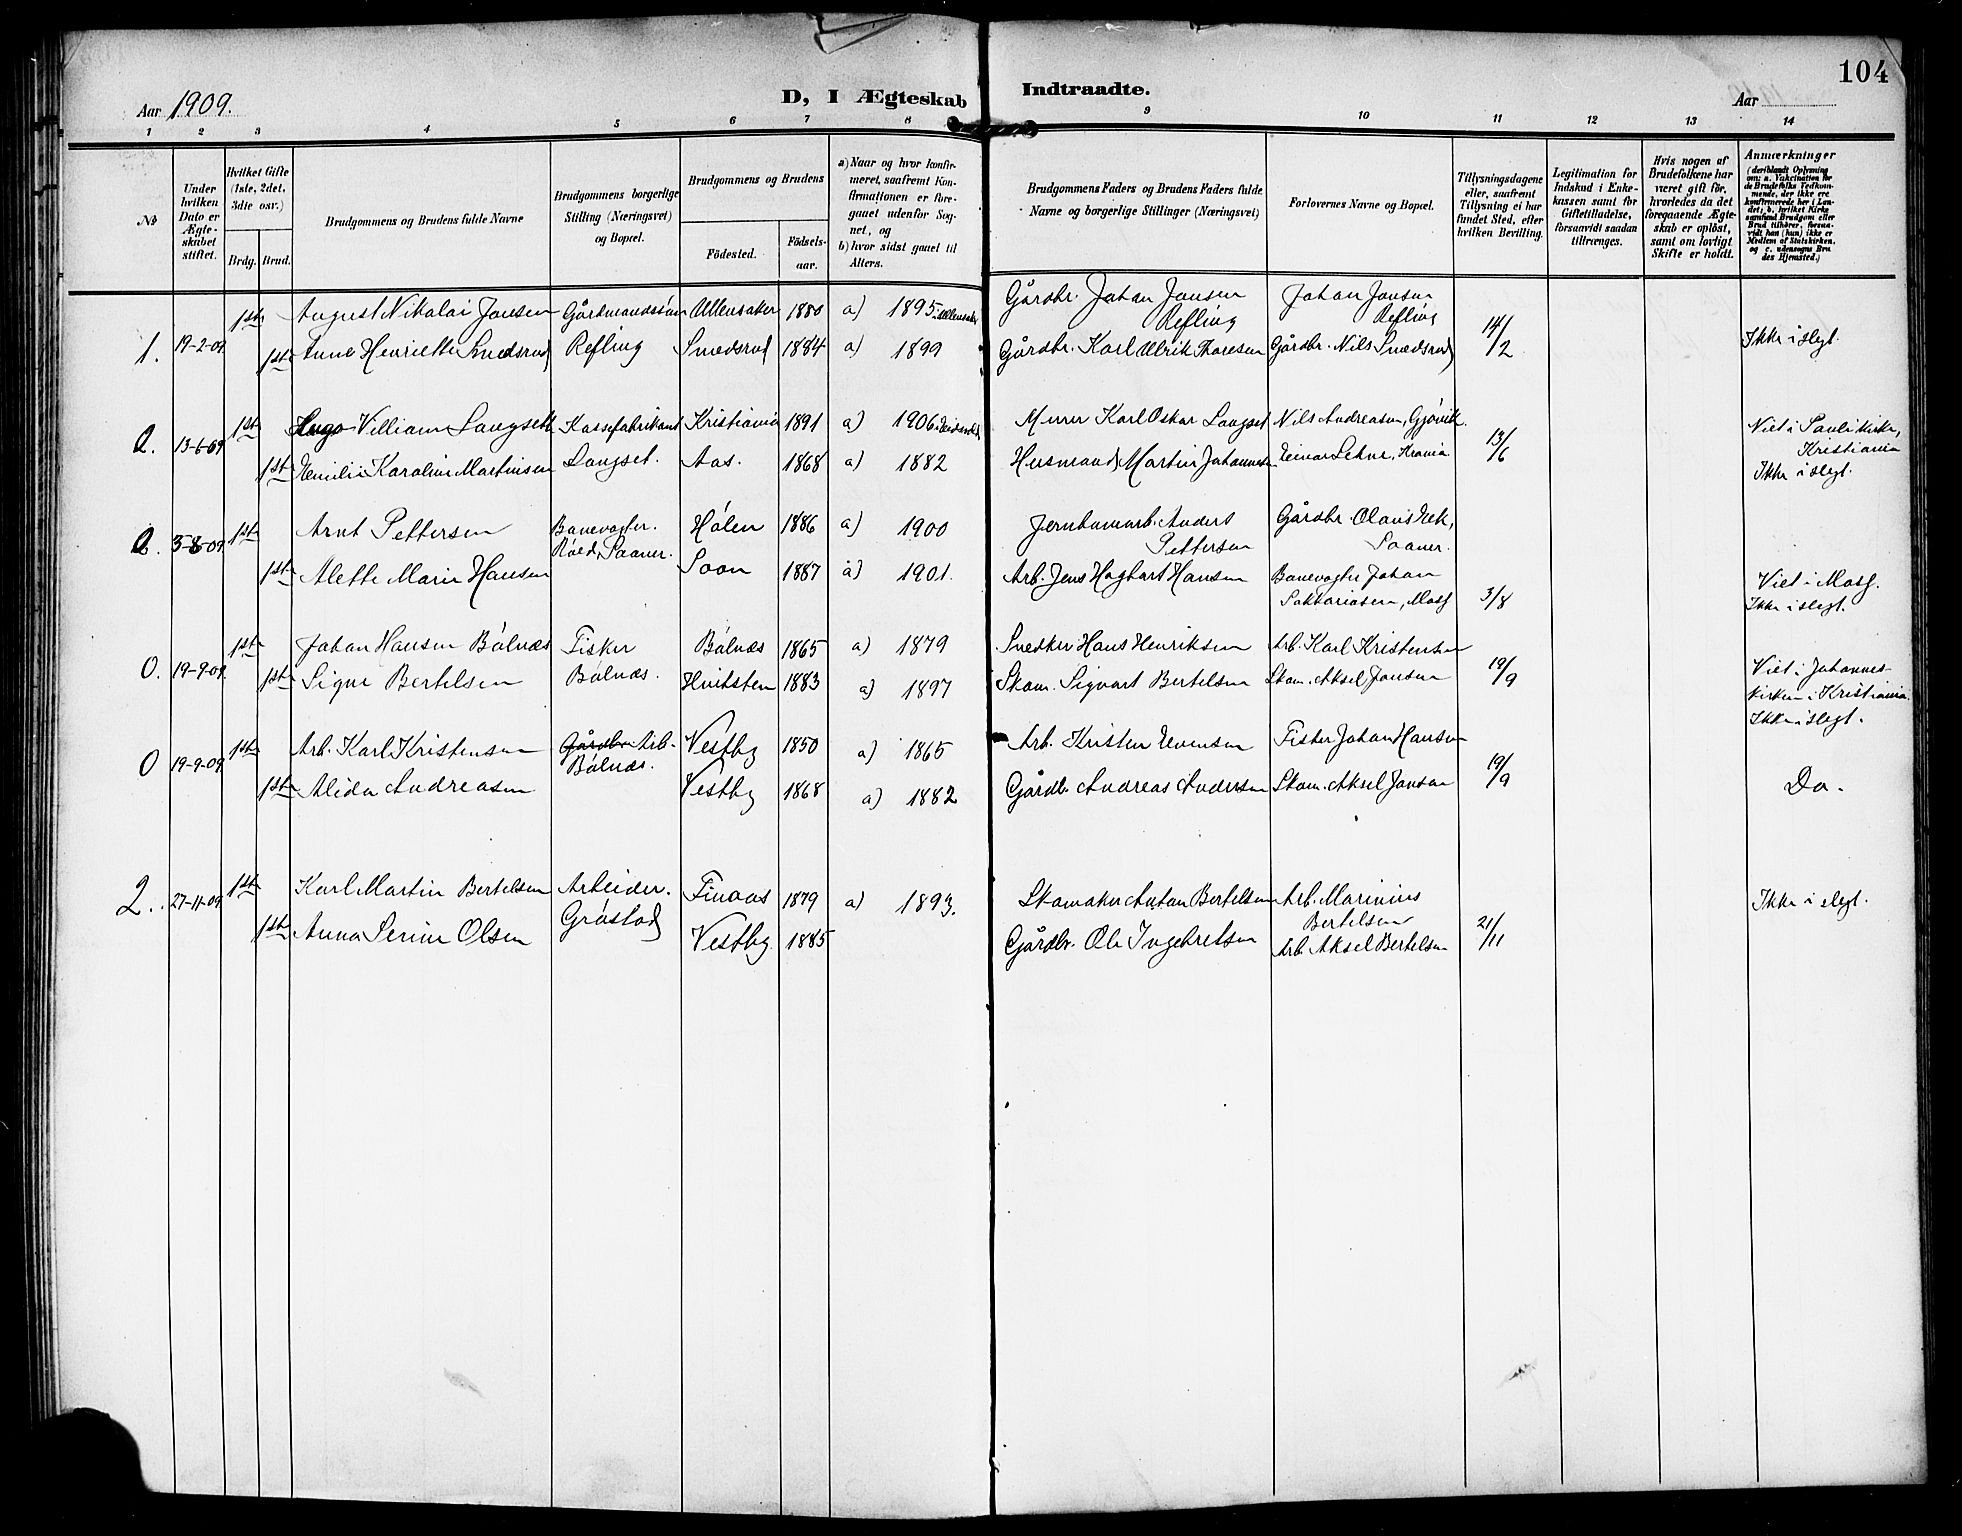 104
Aar 1909.
D, I Ægteskab Indtraadte.
Aar
1 2 3 4 5 6 7 8 9 10 11 12 13 14
№
Under hvilken Dato er Ægteskabet stiftet.
Hvilket Gifte (1ste, 2det, 3die osv.)
Brdg. Brud.
Brudgommens og Brudens fulde Navne
Brudgommens borgerlige Stilling (Næringsvei) og Bopæl.
Brudgommens og Brudens
Fødested.
Fødselsaar.
a) Naar og hvor konfirmeret, saafremt Konfirmationen er foregaaet udenfor Sognet, og
b) hvor sidst gaaet til Alters.
Brudgommens Faders og Brudens Faders fulde Navne og borgerlige Stillinger (Næringsvei)
Forlovernes Navne og Bopæl.
Tillysningsdagene eller, saafremt Tillysning ei har fundet Sted, efter hvilken Bevilling.
Legitimation for Indskud i Enkekassen samt for Giftetilladelse, forsaavidt saadan tiltrænges.
Hvis nogen af Brudefolkene har været gift før, hvorledes da det foregaaende Ægteskab er opløst, samt om lovligt Skifte er holdt.
Anmærkninger
(deriblandt Oplysning om: a. Vakcination for de Brudefolks Vedkommende, der ikke ere konfirmerede her i Landet; b. hvilket Kirkesamfund Brudgom eller Brud tilhører, forsaavidt han (hun) ikke er Medlem af Statskirken, og c. udensogns Brudes Hjemsted.)
1. 19-2-09 1ste August Nikolai Jansen Gårdmandssøn Ullensaker 1880 a) 1895 i Ullensaker Gårdbr. Johan Jansen Refling Johan Jansen Refling 14/2 Ikke i slegt.
1ste Anne Henriette Smedsrud Refling Smedsrud 1884 a) 1899 Gårdbr. Karl Ulrik Thoresen Gårdbr. Nils Smedsrud
2. 13-6-09 1ste Hugo Villiam Langseth Kassefabrikant Kristiania 1891 a) 1906 i Eidsvold Murer Karl Oskar Langset Nils Andreasen, Gjøvik. 13/6 Viet i Pauli kirke, Kristiania
1ste Emilie Karoline Martinsen Langset. Aas. 1868 a) 1882 Husmand Martin Johannesen Einar Lehne, Krania Ikke i slegt.
0. 3-8-09 1ste Arnt Pettersen Banevogter. Røed, Saaner. Hølen 1886 a) 1900 Jernbanearb. Anders Pettersen Gårdbr. Olaus Eek, Saaner.
1ste Alette Marie Hansen Soon 1887 a) 1901. Arb. Jens Hagbart Hansen Banevogter Johan Sakkariasen, Moss 3/8 Viet i Moss. Ikke i slegt.
0. 19-9-09 1ste Johan Hansen Bålnæs Fisker Bålnæs 1865 a) 1879 Snedker Hans Henriksen Arb. Karl Kristensen
1ste Signe Bertelsen Bålnæs. Hvitsten 1883 a) 1897 Skom. Sigvart Bertelsen Skom. Aksel Jansen 19/9 Viet i Johannes-kirken i Kristiania. Ikke i slegt.
0 19-9-09 1ste Arb. Karl Kristensen Gårdbr Arb. Bålnæs. Vestby 1850 a) 1865 Arb. Kristen Evensen Fisker Johan Hansen
1ste Alida Andreasen Vestby 1868 a) 1882 Gårdb. Andreas Andersen Skom. Aksel Jansen 19/9 Do.
2. 27-11-09 1ste Karl Martin Bertelsen Arbeider. Grøstad Finaas 1879 a) 1893. Skomaker Anton Bertelsen Arb. Marinius Bertelsen Ikke i slegt.
1ste Anna Serine Olsen Vestby. 1885 Gårdbr. Ole Ingebretsen Arb. Aksel Bertelsen 21/11